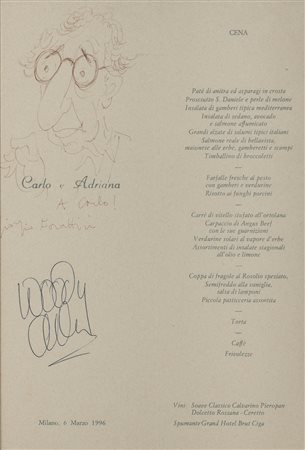 Carlo e Adriana
A Carlo!
Giorgio Forattini
Woody
Allen
Milano, 6 Marzo 1996
CENA
Patè di anitra ed asparagi in crosta
Prosciutto S. Daniele e perle di melone
Insalata di gamberi tipica mediterranea
Insalata di sedano, avocado
e salmone affumicato
Grandi alzate di salumi tipici italiani
Salmone reale di bellavista,
maionese alle erbe, gamberetti e scampi
Timballino di broccoletti
—
Farfalle fresche al pesto
con gamberi e verdurine
Risotto ai funghi porcini
—
Carrè di vitello stufato all'ortolana
Carpaccio di Angus Beef
con le sue guarnizioni
Verdurine solari al vapore d'erbe
Assortimenti di insalate stagionali
all'olio e limone
—
Coppa di fragole al Rosolio speziato,
Semifreddo alla vaniglia,
salsa di lamponi
Piccola pasticceria assortita
—
Torta
—
Caffè
Frivolezze
Vini: Soave Classico Calvarino Pieropan
Dolcetto Rossana - Ceretto
Spumante Grand Hotel Brut Ciga